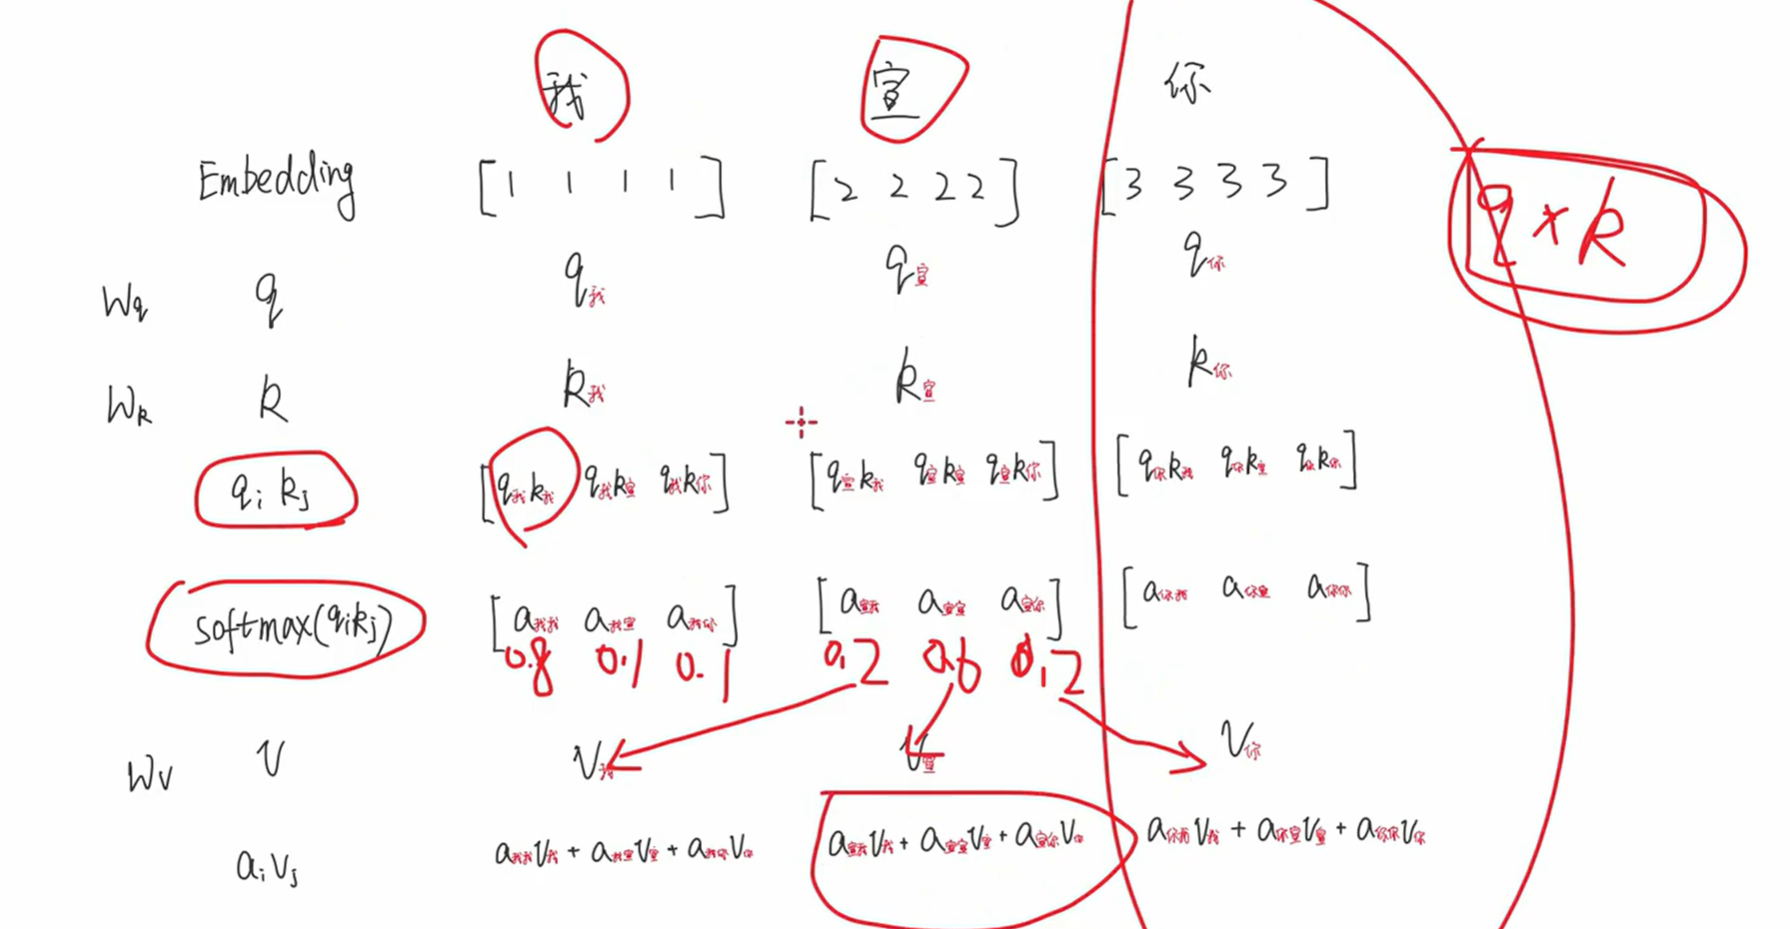 我 宣 你
Embedding [1 1 1 1] [2 2 2 2] [3 3 3 3]
q * k
Wq q q我 q宣 q你
Wk k k我 k宣 k你
qi kj [q我k我 q我k宣 q我k你] [q宣k我 q宣k宣 q宣k你] [q你k我 q你k宣 q你k你]
softmax(qikj) [a我我 a我宣 a我你] [a宣我 a宣宣 a宣你] [a你我 a你宣 a你你]
0.8 0.1 0.1 0.2 0.6 0.2
Wv v v我 v宣 v你
aivj a我我v我 + a我宣v宣 + a我你v你 a宣我v我 + a宣宣v宣 + a宣你v你 a你我v我 + a你宣v宣 + a你你v你